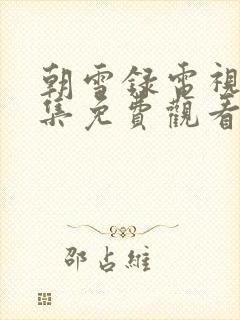 朝雪録電視
集免費觀看
邵占維